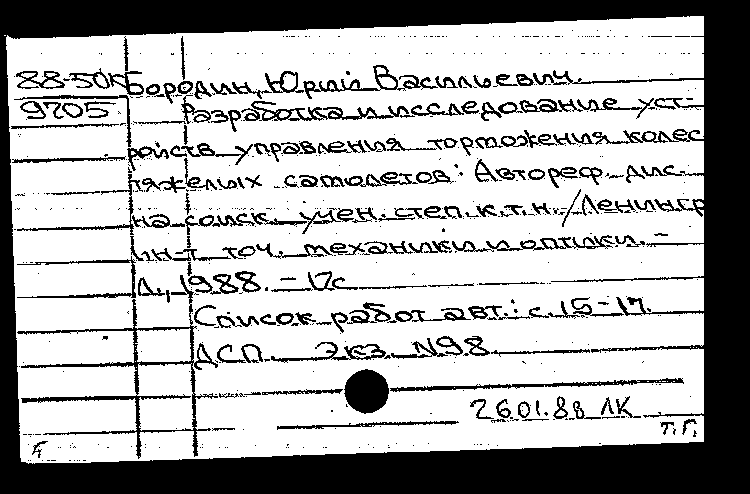 88-50К Бородин, Юрий Васильевич.
9705 Разработка и исследование уст-
ройств управления торможения колес
тяжелых самолетов: Автореф. дис.
на соиск. учен. степ. к.т.н. / Ленингр
ин-т точ. механики и оптики. -
Л., 1988. - 17с
Список работ авт.: с. 15-17.
ДСП. Экз. N98.
26.01.88 ЛК
Т.Г.